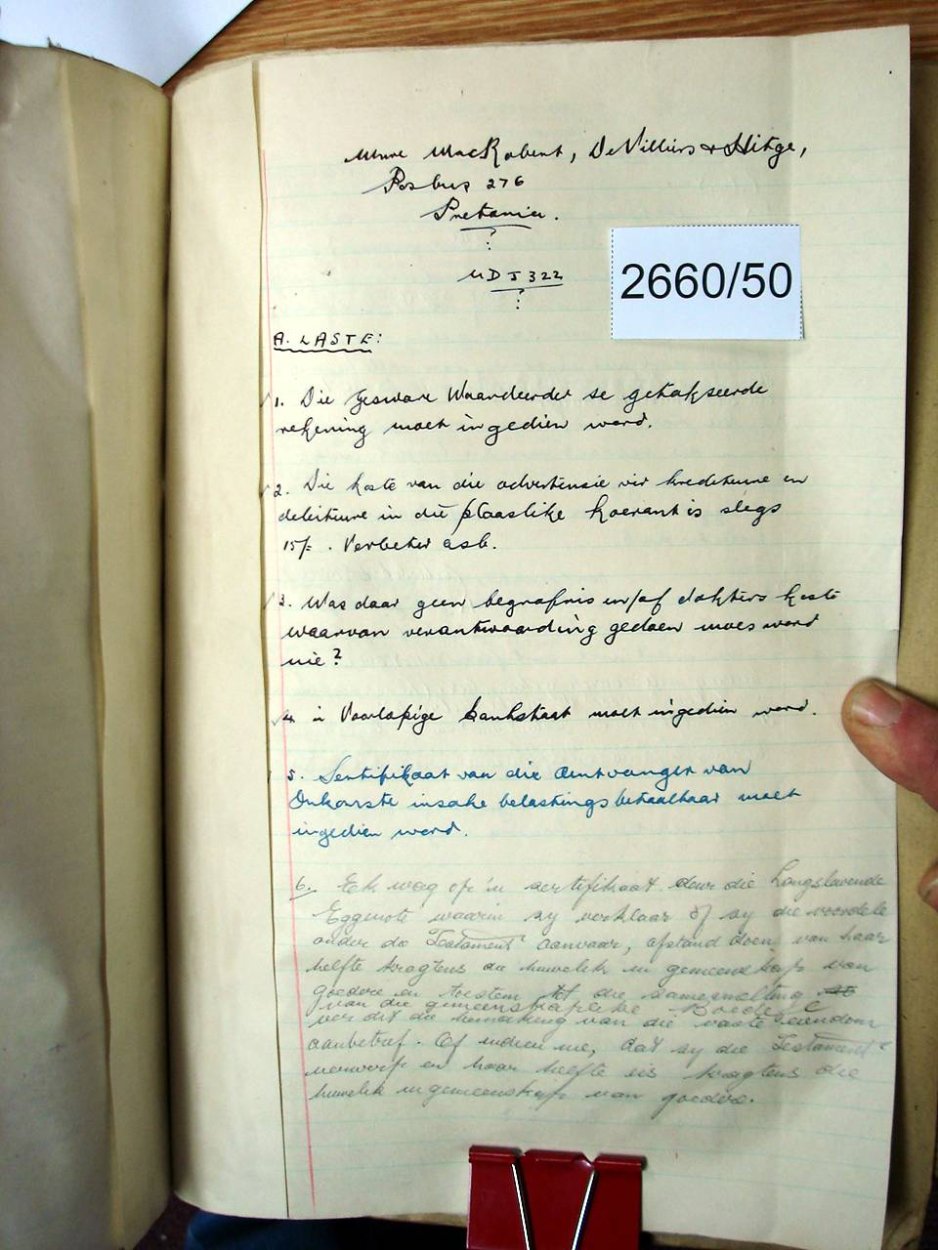 Mnre MacRobert, De Villiers & Hitge,
Posbus 276
Pretoria.
MDJ 322
2660/50
A. LASTE:
1. Die geswore Waardeerder se getakseerde
rekening moet ingedien word.
2. Die koste van die advertensie vir krediteure en
debiteure in die plaaslike koerant is slegs
15/-. Verbeter asb.
3. Was daar geen begrafnis en/of dokters koste
waarvan verantwoording gedoen moes word
nie?
4. 'n Voorlopige bankstaat moet ingedien word.
5. Sertifikaat van die Ontvanger van
Inkomste insake belastings betaalbaar moet
ingedien word.
6. Ek wag op 'n sertifikaat deur die Langslewende
Eggenote waarin sy verklaar of sy die voordele
onder die Testament aanvaar, afstand doen van haar
helfte kragtens die huwelik in gemeenskap van
goedere en toestem tot die samesmelting
van die gemeenskaplike Boedel
ver dit die bemaking van die vaste eiendom
aanbetref. Of indien nie, dat sy die Testament
verwerp en haar helfte eis kragtens die
huwelik in gemeenskap van goedere.